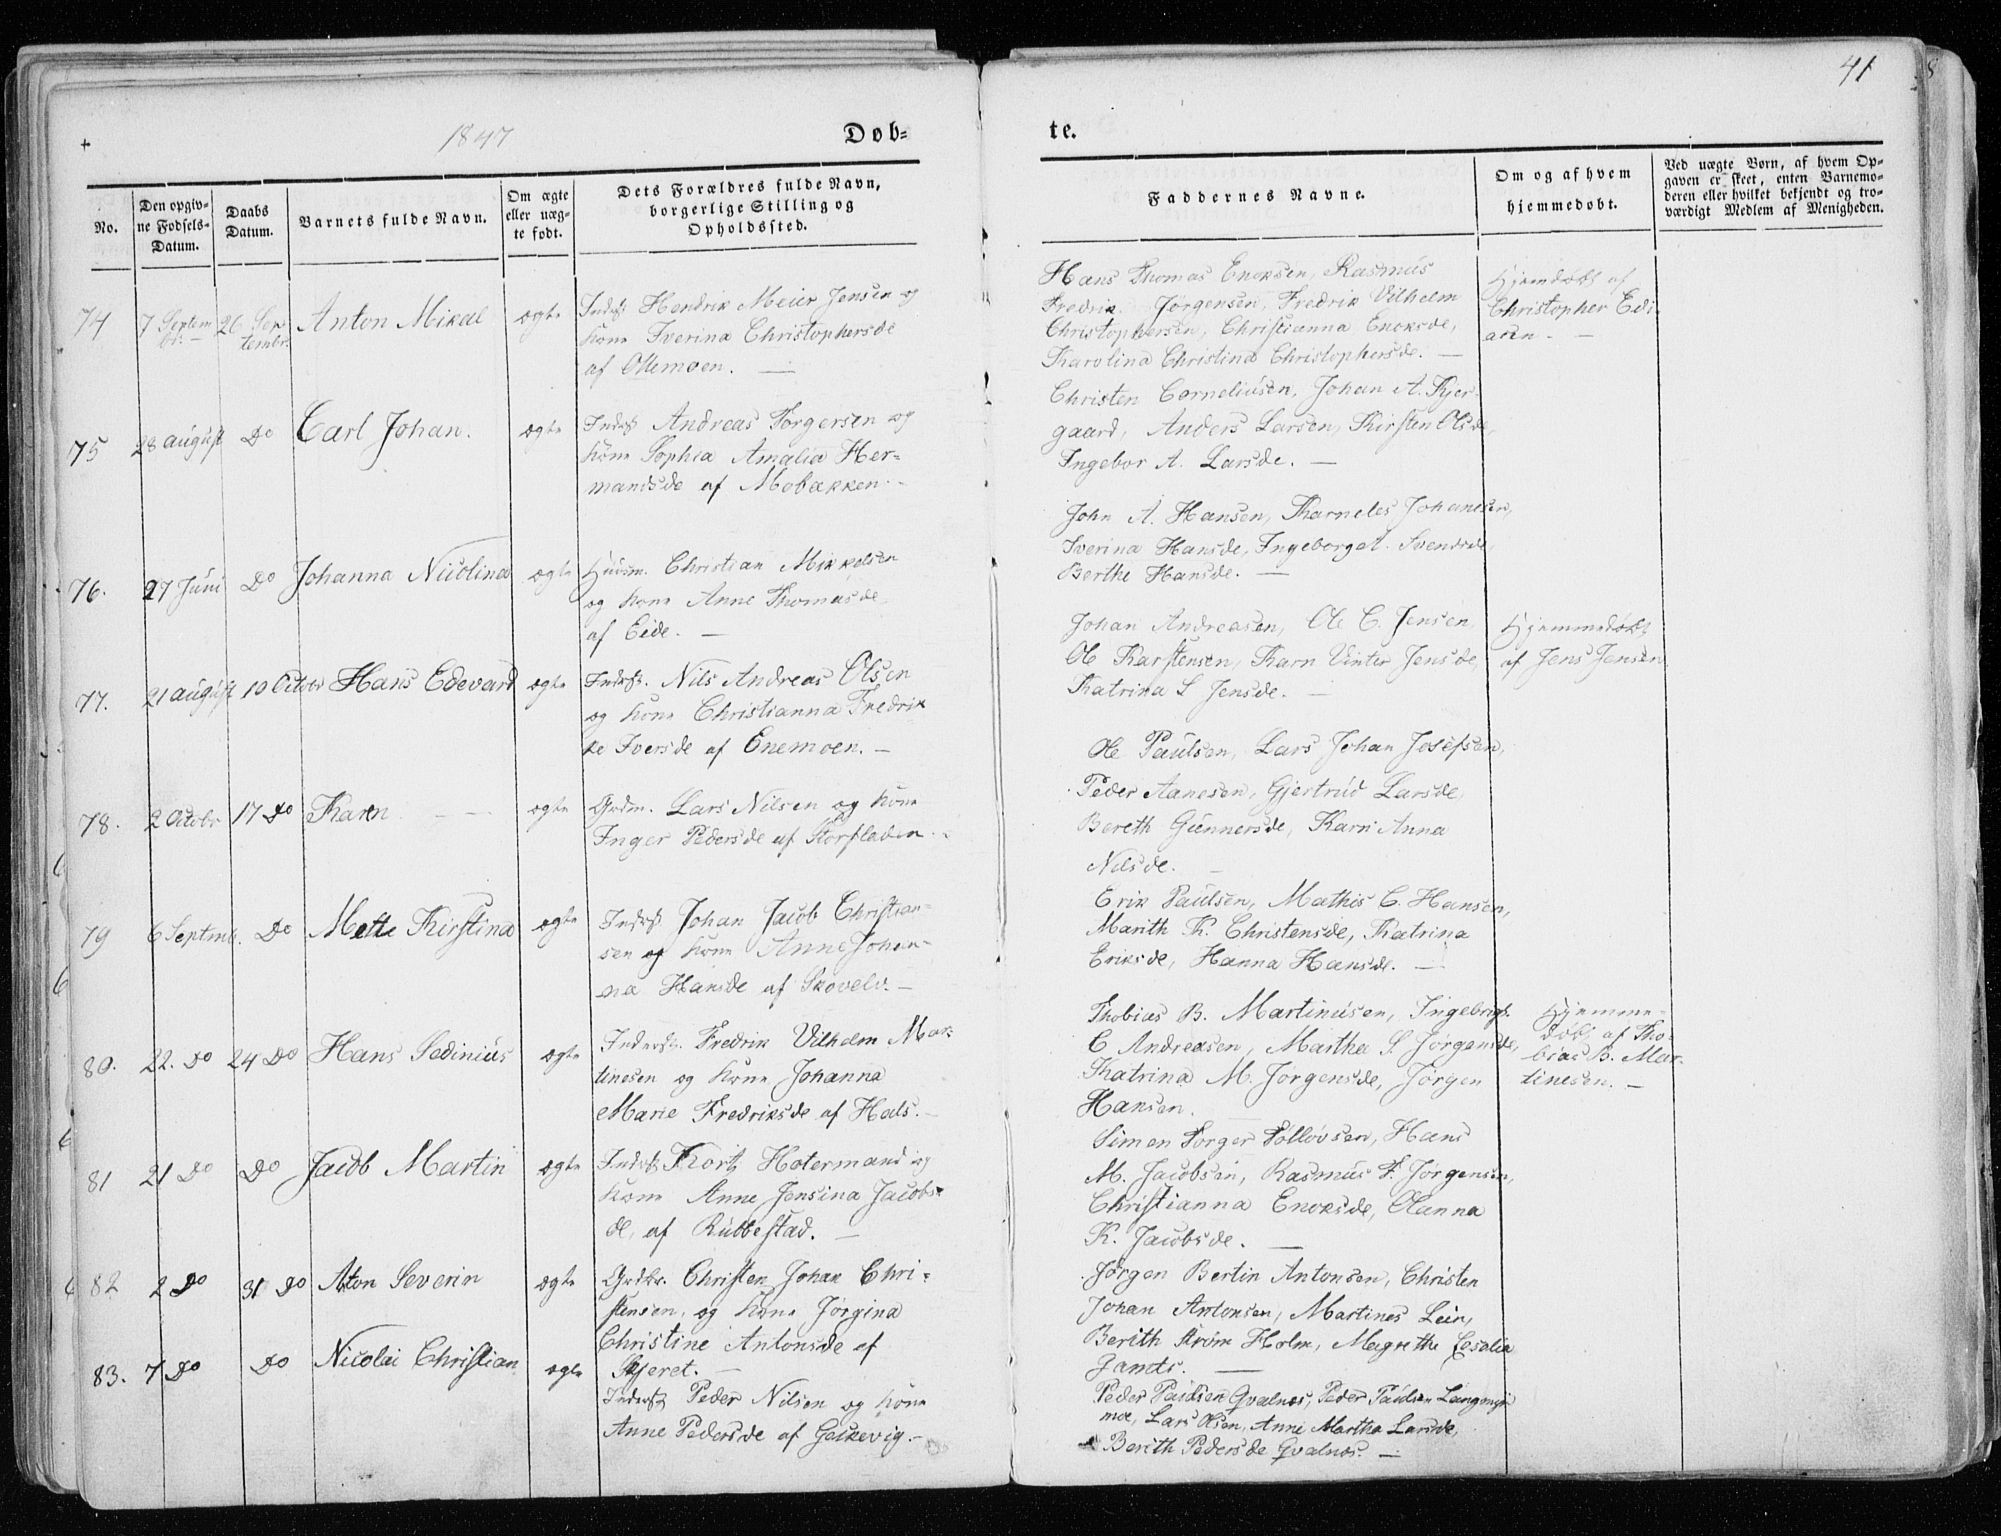 41
1847
Døb=
te.
No.
Den opgiv=
ne Fødsels=
Datum.
Daabs
Datum.
Barnets fulde Navn.
Om ægte
eller uæg=
te født.
Dets Forældres fulde Navn,
borgerlige Stilling og
Opholdssted.
Faddernes Navne.
Om og af hvem
hjemmedøbt.
Ved uægte Børn, af hvem Op=
gaven er skeet, enten Barnemo=
deren eller hvilket bekjendt og tro=
værdigt Medlem af Menigheden.
74
7 Septem
br. —
26 Sep
tembr.
Anton Mikal
ægte
Inderst Hendrik Meier Jensen og
kone Iverina Christophersde
af Ollemoen. —
Hans Thomas Enoksen, Rasmus
Fredrik Jørgensen, Fredrik Vilhelm
Christophersen, Christianna Enoksde,
Karolina Christina Christophersde. —
Hjemdøbt af
Christopher Edi
asen. —
75
28 august
Do
Carl Johan.
ægte
Inderst Andreas Torgersen og
kone Sophia Amalia Her=
mandsde af Mobakken. -
Christen Corneliusen, Johan A. Kjer-
gaard, Anders Larsen, Kirsten Olsde,
Ingebor A. Larsde. —
76.
27 Juni
Do
Johanna Nicolina
ægte
Huusm. Christian Mikkelsen
og kone Anne Thomasde
af Eide. —
John A. Hansen, Karneles Johanesen,
Iverina Hansde, Ingeborg A. Svendsde
Berthe Hansde. —
77.
21 august
10 Octobr
Hans Edevard
ægte
Inderst. Nils Andreas Olsen
og kone Christianna Fredrik
ke Iversde af Enemoen. —
Johan Andreasen, Ole C. Jensen
Ole Karstensen, Karn Vinter Jensde,
Katrina S Jensde. —
Hjemmedøbt
af Jens Jensen
78.
2 Octobr
17 Do
Karen — —
ægte
Grdm. Lars Nilsen og kone
Inger Pedersde af Storfladen. -
Ole Paulsen, Lars Johan Josefsen,
Peder Aanesen, Gjertrud Larsde,
Bereth Gunnersde, Karn Anna
Nilsde. —
79
6 Septmb.
Do
Mette Kirstina
ægte
Inderst Johan Jacob Christian=
sen og kone Anne Johan=
na Hansde af Skovelv. —
Erik Paulsen, Mathis C. Hansen,
Marith K. Christensde, Katrina
Eriksde, Hanna Hansde. —
80.
22. Do
24 Do
Hans Sedinius
ægte
Inderst. Fredrik Vilhelm Mar=
tinesen og kone Johanna
Marie Fredriksde af Hals. —
Thobias B. Martinusen, Ingebrigt
C Andreasen, Martha S. Jørgensde,
Katrina M. Jørgensde, Jørgen
Hansen.
Hjemme=
døbt af Tho=
bias B. Mar=
tinesen. —
81
21 Do
Do
Jacob Martin
ægte
Inderst Kortz Hotermand og
kone Anne Jensina Jacobs=
de, af Rubbestad. —
Simon Torger Tolløvsen, Hans
M. Jacobsen, Rasmus F. Jørgensen,
Christianna Enoksde, Olanna
K. Jacobsde. —
82
2 Do
31 Do
Aton Severin
ægte
Grdbr. Christen Johan Chri=
stensen, og kone Jørgina
Christine Antonsde af
Skjeret. —
Jørgen Bertin Antonsen, Christen
Johan Antonsen, Martines Lein,
Berith Strøm Holm, Magrethe Cesalia
83.
7 Do
Do
Nicolai Christian
ægte
Inderst Peder Nilsen og kone
Anne Pedersde af Geskevig. -
Peder Paulsen Gvalnæs, Peder Paulsen
moe, Lars Olsen, Anne Martha Larsde,
Berith Pedersde Gvalnæs. —